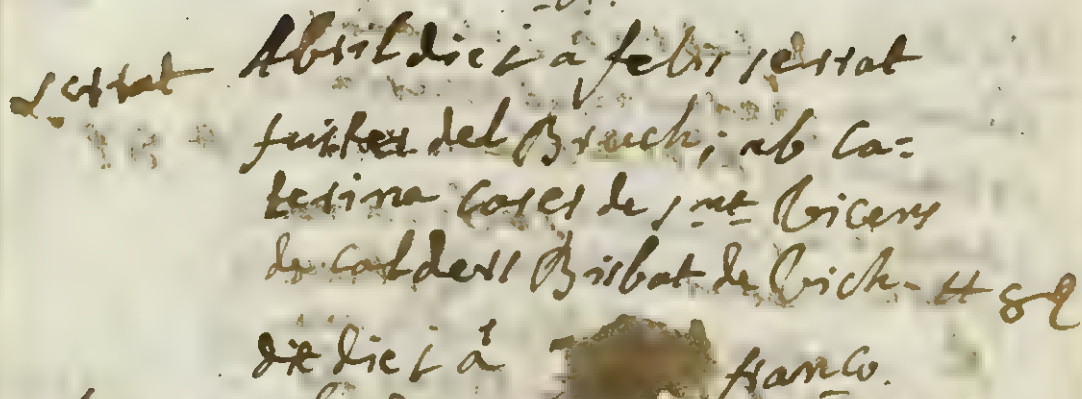 serrat
Abril die 5 a felix serrat
fuster del Bruch; ab Ca=
terina Coses de snt Vicens
de Calders Bisbat de Vich - ₶ 8 ß
dit die 5 á franco.